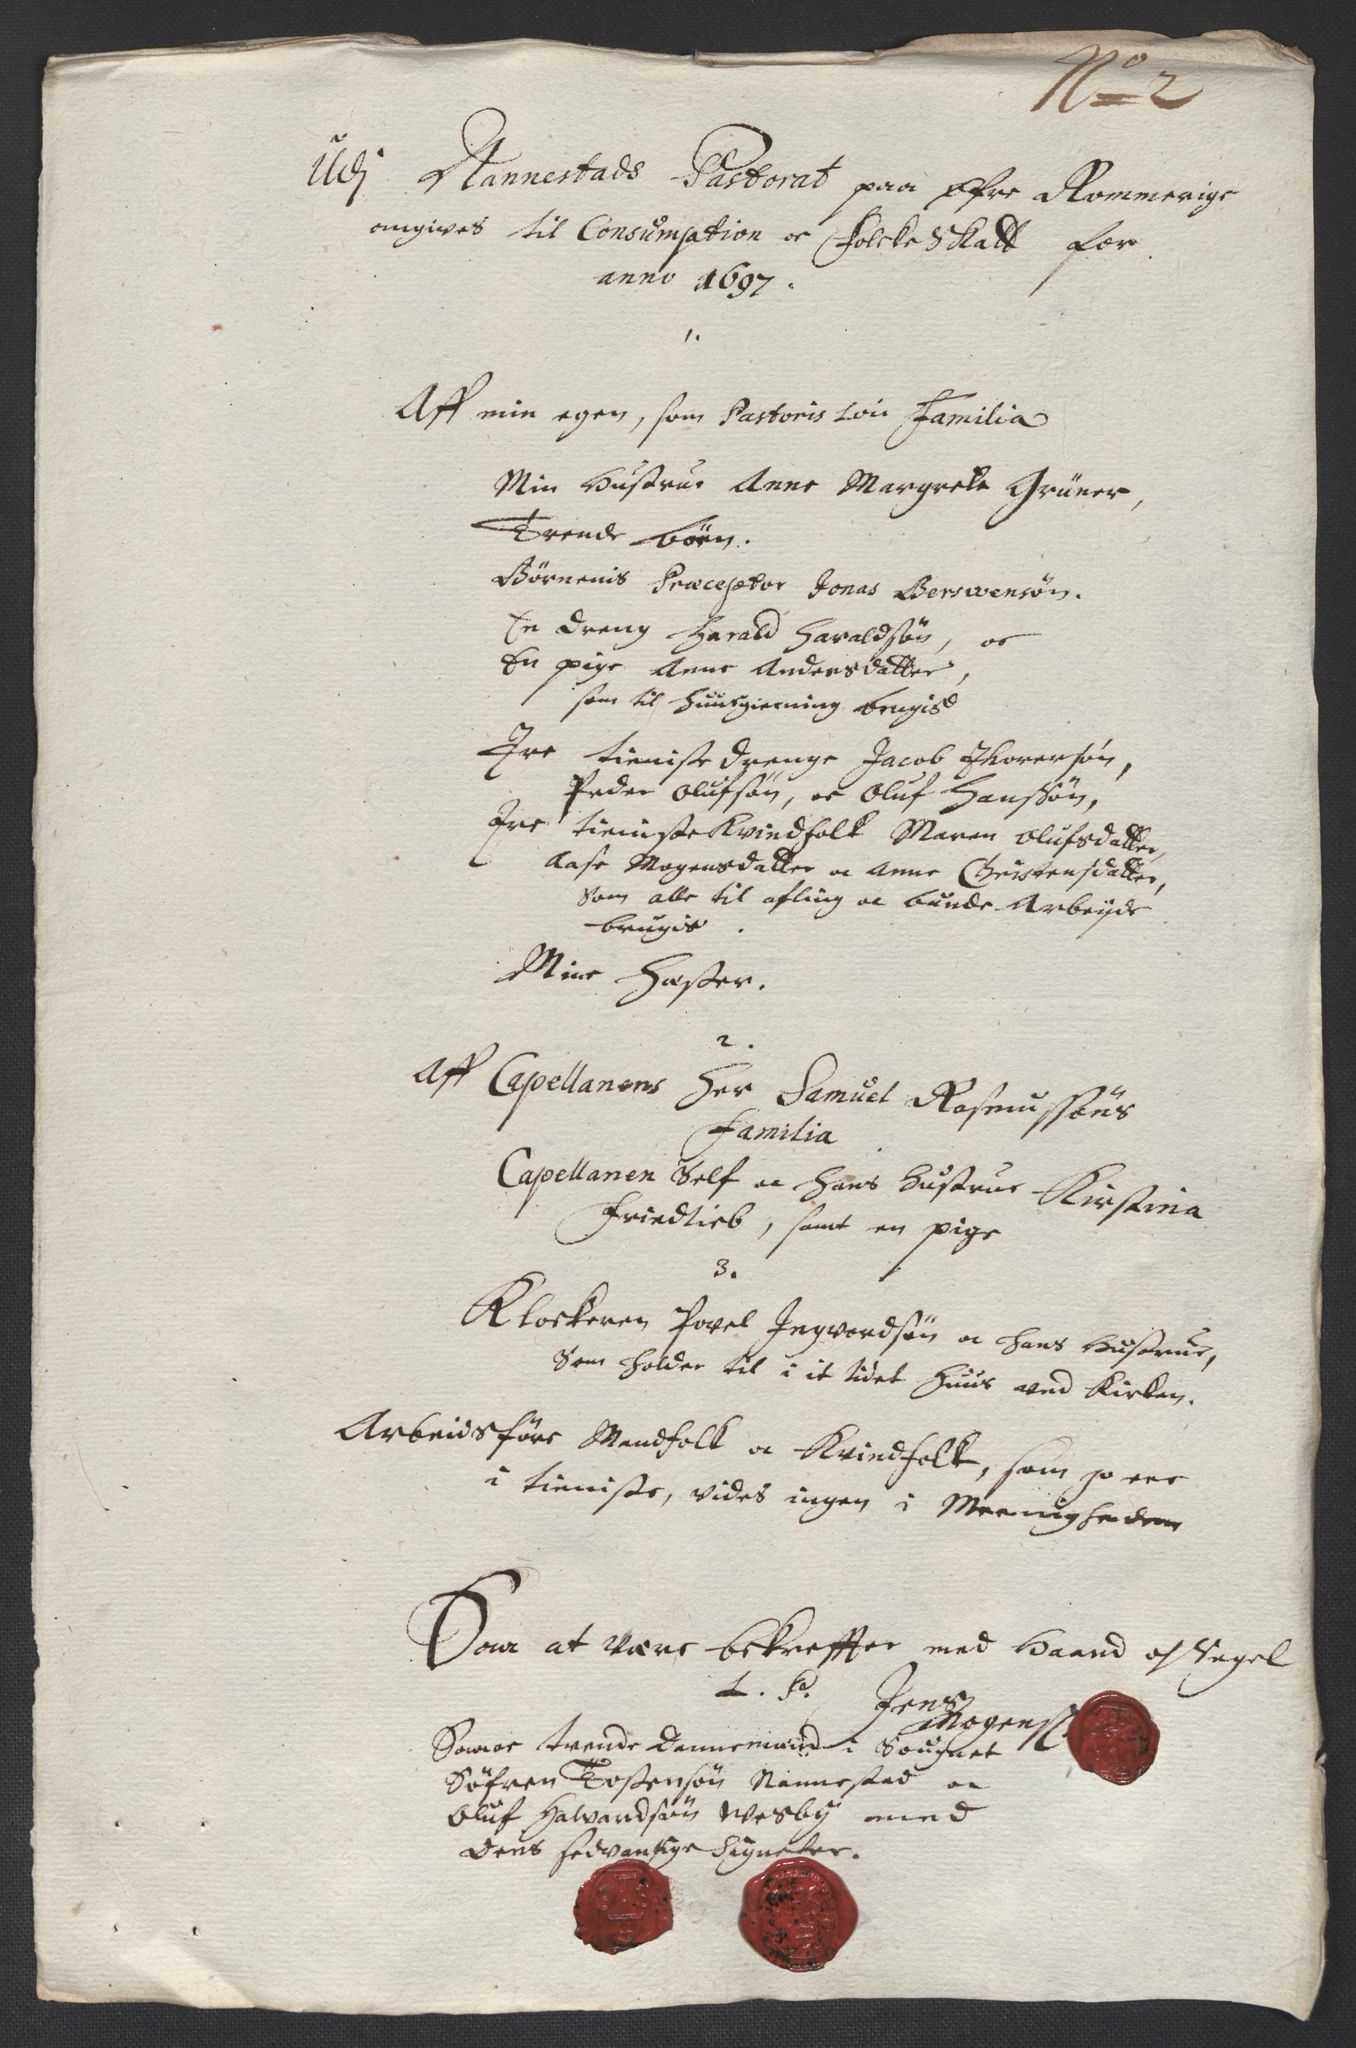 No 2
Udj Nannestads Pastorat paa øfre Rommerige
angives til Consumption oc Folcke Skatt for
anno 1697.
1.
Aff min egen, som Pastoris Loci Familia
Min Hustrue Anne Margrete Grüner,
Trende børn.
Børnenis Præceptor Jonas Berswensøn.
En dreng Harald Haraldsøn, oc
En pige Anne Andersdatter,
som til huusgierning brugis
Tre tieniste drenge Jacob
Peder Olufsøn, oc Oluf Hanssøn,
Tre tieniste Kvindfolk Maren Olufsdatter,
Aase Mogensdatter oc Anne Christensdatter,
som alle til afling oc bunde Arbeyde
brugis.
Mine Hæster.
2.
Aff Capellanens Her Samuel Rasmussøns
Familia
Capellanen Self oc hans hustrue Kirstina
Friedlieb, samt en pige
3.
Klockeren Povel Ingvordsøn oc hans Hustrue,
som holder til i it lidet huus ved Kirken.
Arbeidsføre Mandfolk oc Kvindfolk, som ere
i tieniste, vides ingen i Meenigheden
Saa at være bekreffter med Haand oc Segel
L. S. Jens
Mogenss
Sampt trende Dannemænd i Sougnet
Søfren Tostensøn Nannestad oc
Oluf Halvardsøn Wesby med
Deris sedvanlige Signeter.